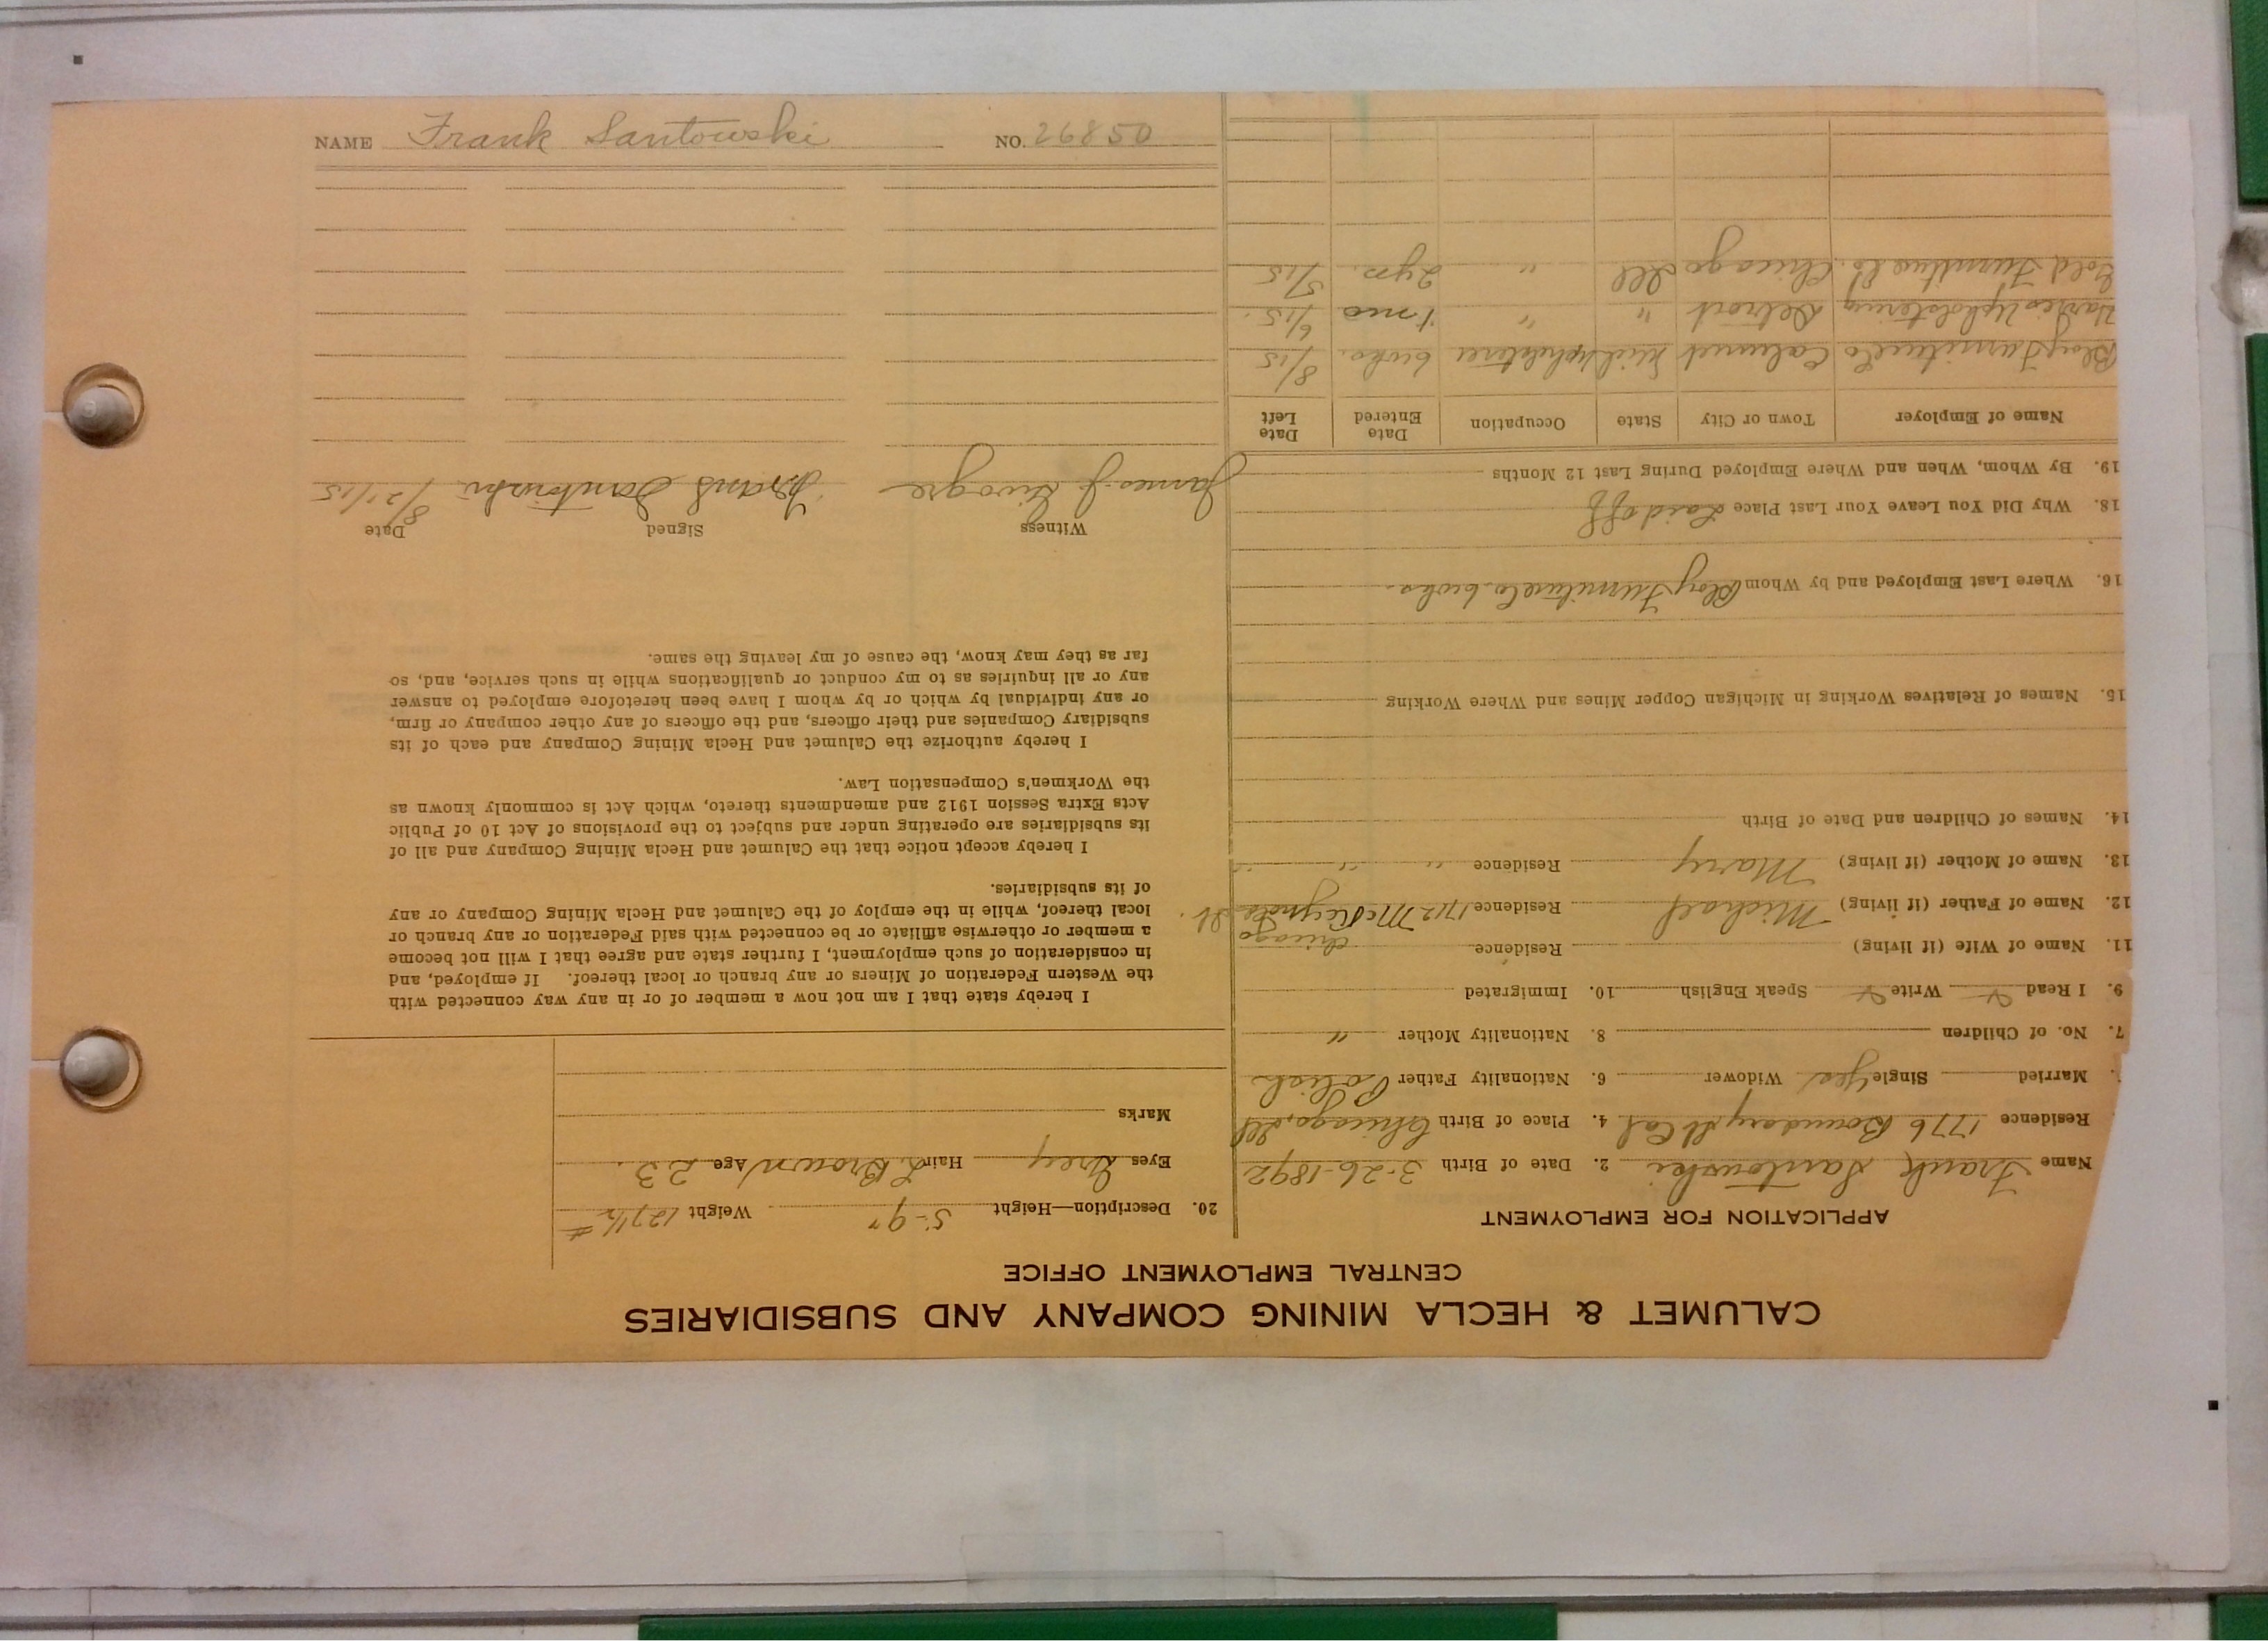 CALUMET & HECLA MINING COMPANY AND SUBSIDIARIES
CENTRAL EMPLOYMENT OFFICE
APPLICATION FOR EMPLOYMENT
Name Frank Santowski 2. Date of Birth 3-26-1892
Residence 1776 Boundary St Cal 4. Place of Birth Chicago, Ill
Married Single Yes Widower 6. Nationality Father Polish
7. No. of Children 8. Nationality Mother "
9. I Read Write Speak English 10. Immigrated
11. Name of Wife (if living) Residence
Chicago
12. Name of Father (if living) Michael Residence 1712 McReynolds St.
13. Name of Mother (if living) Mary Residence " " "
14. Names of Children and Date of Birth
15. Names of Relatives Working in Michigan Copper Mines and Where Working
16. Where Last Employed and by Whom Furniture Co. 6 wks.
18. Why Did You Leave Your Last Place Laid off
19. By Whom, When and Where Employed During Last 12 Months
Name of Employer Town or City State Occupation Date Entered Date Left
Furniture Co Calumet Mich Upholsterer 6 wks. 8/15
Upholstering Detroit " " 1 mo 6/15.
Furniture Co. Chicago Ill " 2 yrs. 5/15
20. Description—Height 5-9" Weight 127 1/2 #
Eyes Grey Hair L. Brown Age 23.
Marks
I hereby state that I am not now a member of or in any way connected with
the Western Federation of Miners or any branch or local thereof. If employed, and
in consideration of such employment, I further state and agree that I will not become
a member or otherwise affiliate or be connected with said Federation or any branch or
local thereof, while in the employ of the Calumet and Hecla Mining Company or any
of its subsidiaries.
I hereby accept notice that the Calumet and Hecla Mining Company and all of
its subsidiaries are operating under and subject to the provisions of Act 10 of Public
Acts Extra Session 1912 and amendments thereto, which Act is commonly known as
the Workmen's Compensation Law.
I hereby authorize the Calumet and Hecla Mining Company and each of its
subsidiary Companies and their officers, and the officers of any other company or firm,
or any individual by which or by whom I have been heretofore employed to answer
any or all inquiries as to my conduct or qualifications while in such service, and, so
far as they may know, the cause of my leaving the same.
Witness Signed Date
James J. Frank Santowski 8/21/15
NAME Frank Santowski NO. 26850